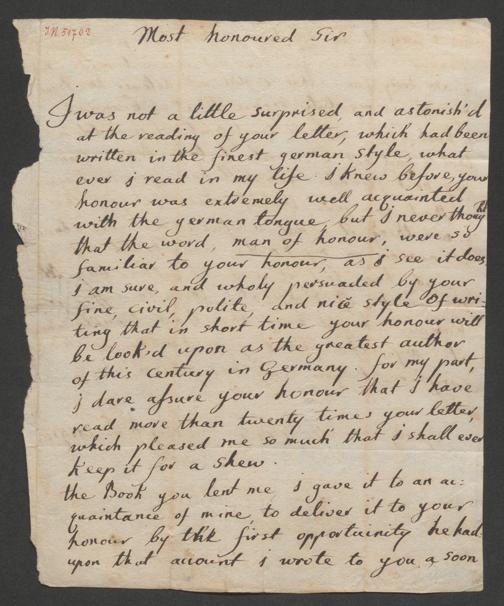 IN 50702
Most honoured Sir
I was not a little surprised, and astonish'd
at the reading of your letter, which had been
written in the finest german style, what
ever j read in my life. I knew before, your
honour was extremely well acquainted
with the german tongue, but I never though
that the word, man of honour, were so
familiar to your honour, as I see it does,
j am sure, and wholy persuaded by your
fine, civil, polite, and nice style of wri-
ting that in short time your honour will
be look'd upon as the greatest author
of this century in Germany. for my part,
j dare assure your honour that I have
read more than twenty times your letter,
which pleased me so much that j shall ever
keep it for a shew.
the Book you lent me, j gave it to an ac:
quaintance of mine to deliver it to your
honour by the first opportuinity he had
upon that account j wrote to you a soon